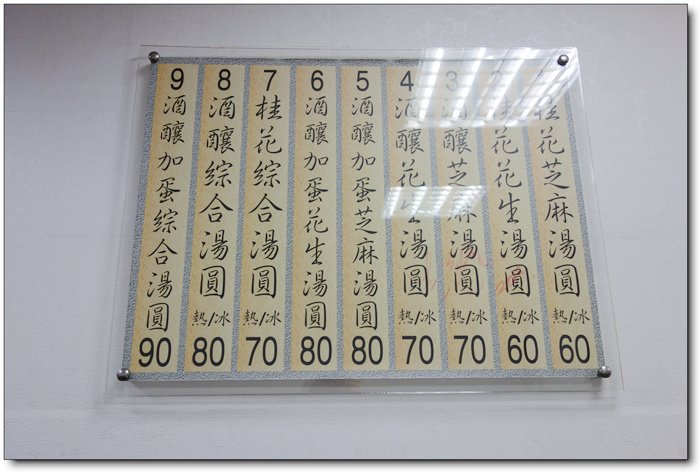 桂花芝麻湯圓 熱/冰 60
2 桂花花生湯圓 熱/冰 60
3 酒釀芝麻湯圓 熱/冰 70
4 酒釀花生湯圓 熱/冰 70
5 酒釀加蛋芝麻湯圓 80
6 酒釀加蛋花生湯圓 80
7 桂花綜合湯圓 熱/冰 70
8 酒釀綜合湯圓 熱/冰 80
9 酒釀加蛋綜合湯圓 90